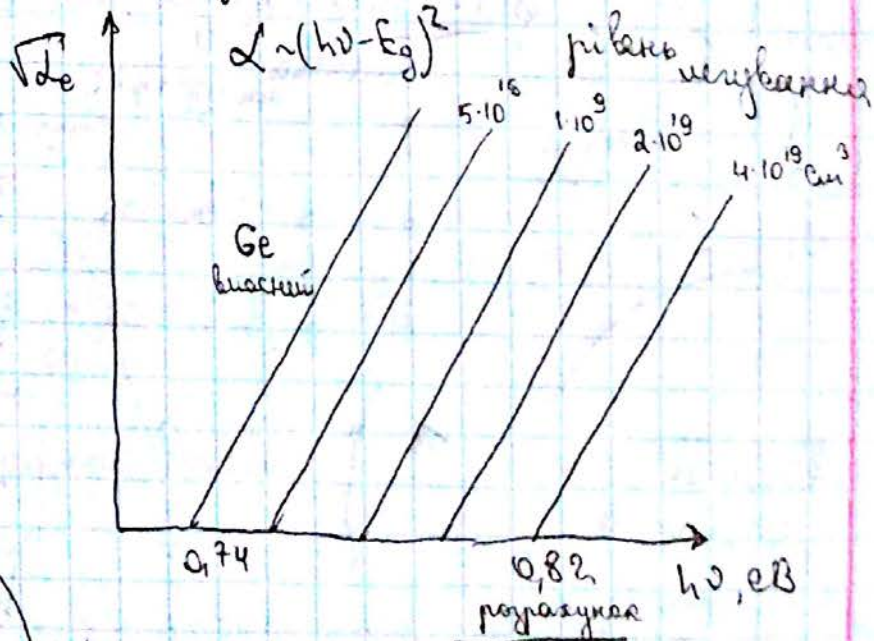 √αe
α ~ (hν - Eg)²
рівень легування
5·10¹⁸
1·10⁹
2·10¹⁹
4·10¹⁹ см³
Ge
власний
0,74
0,82
hν, еВ
розрахунок